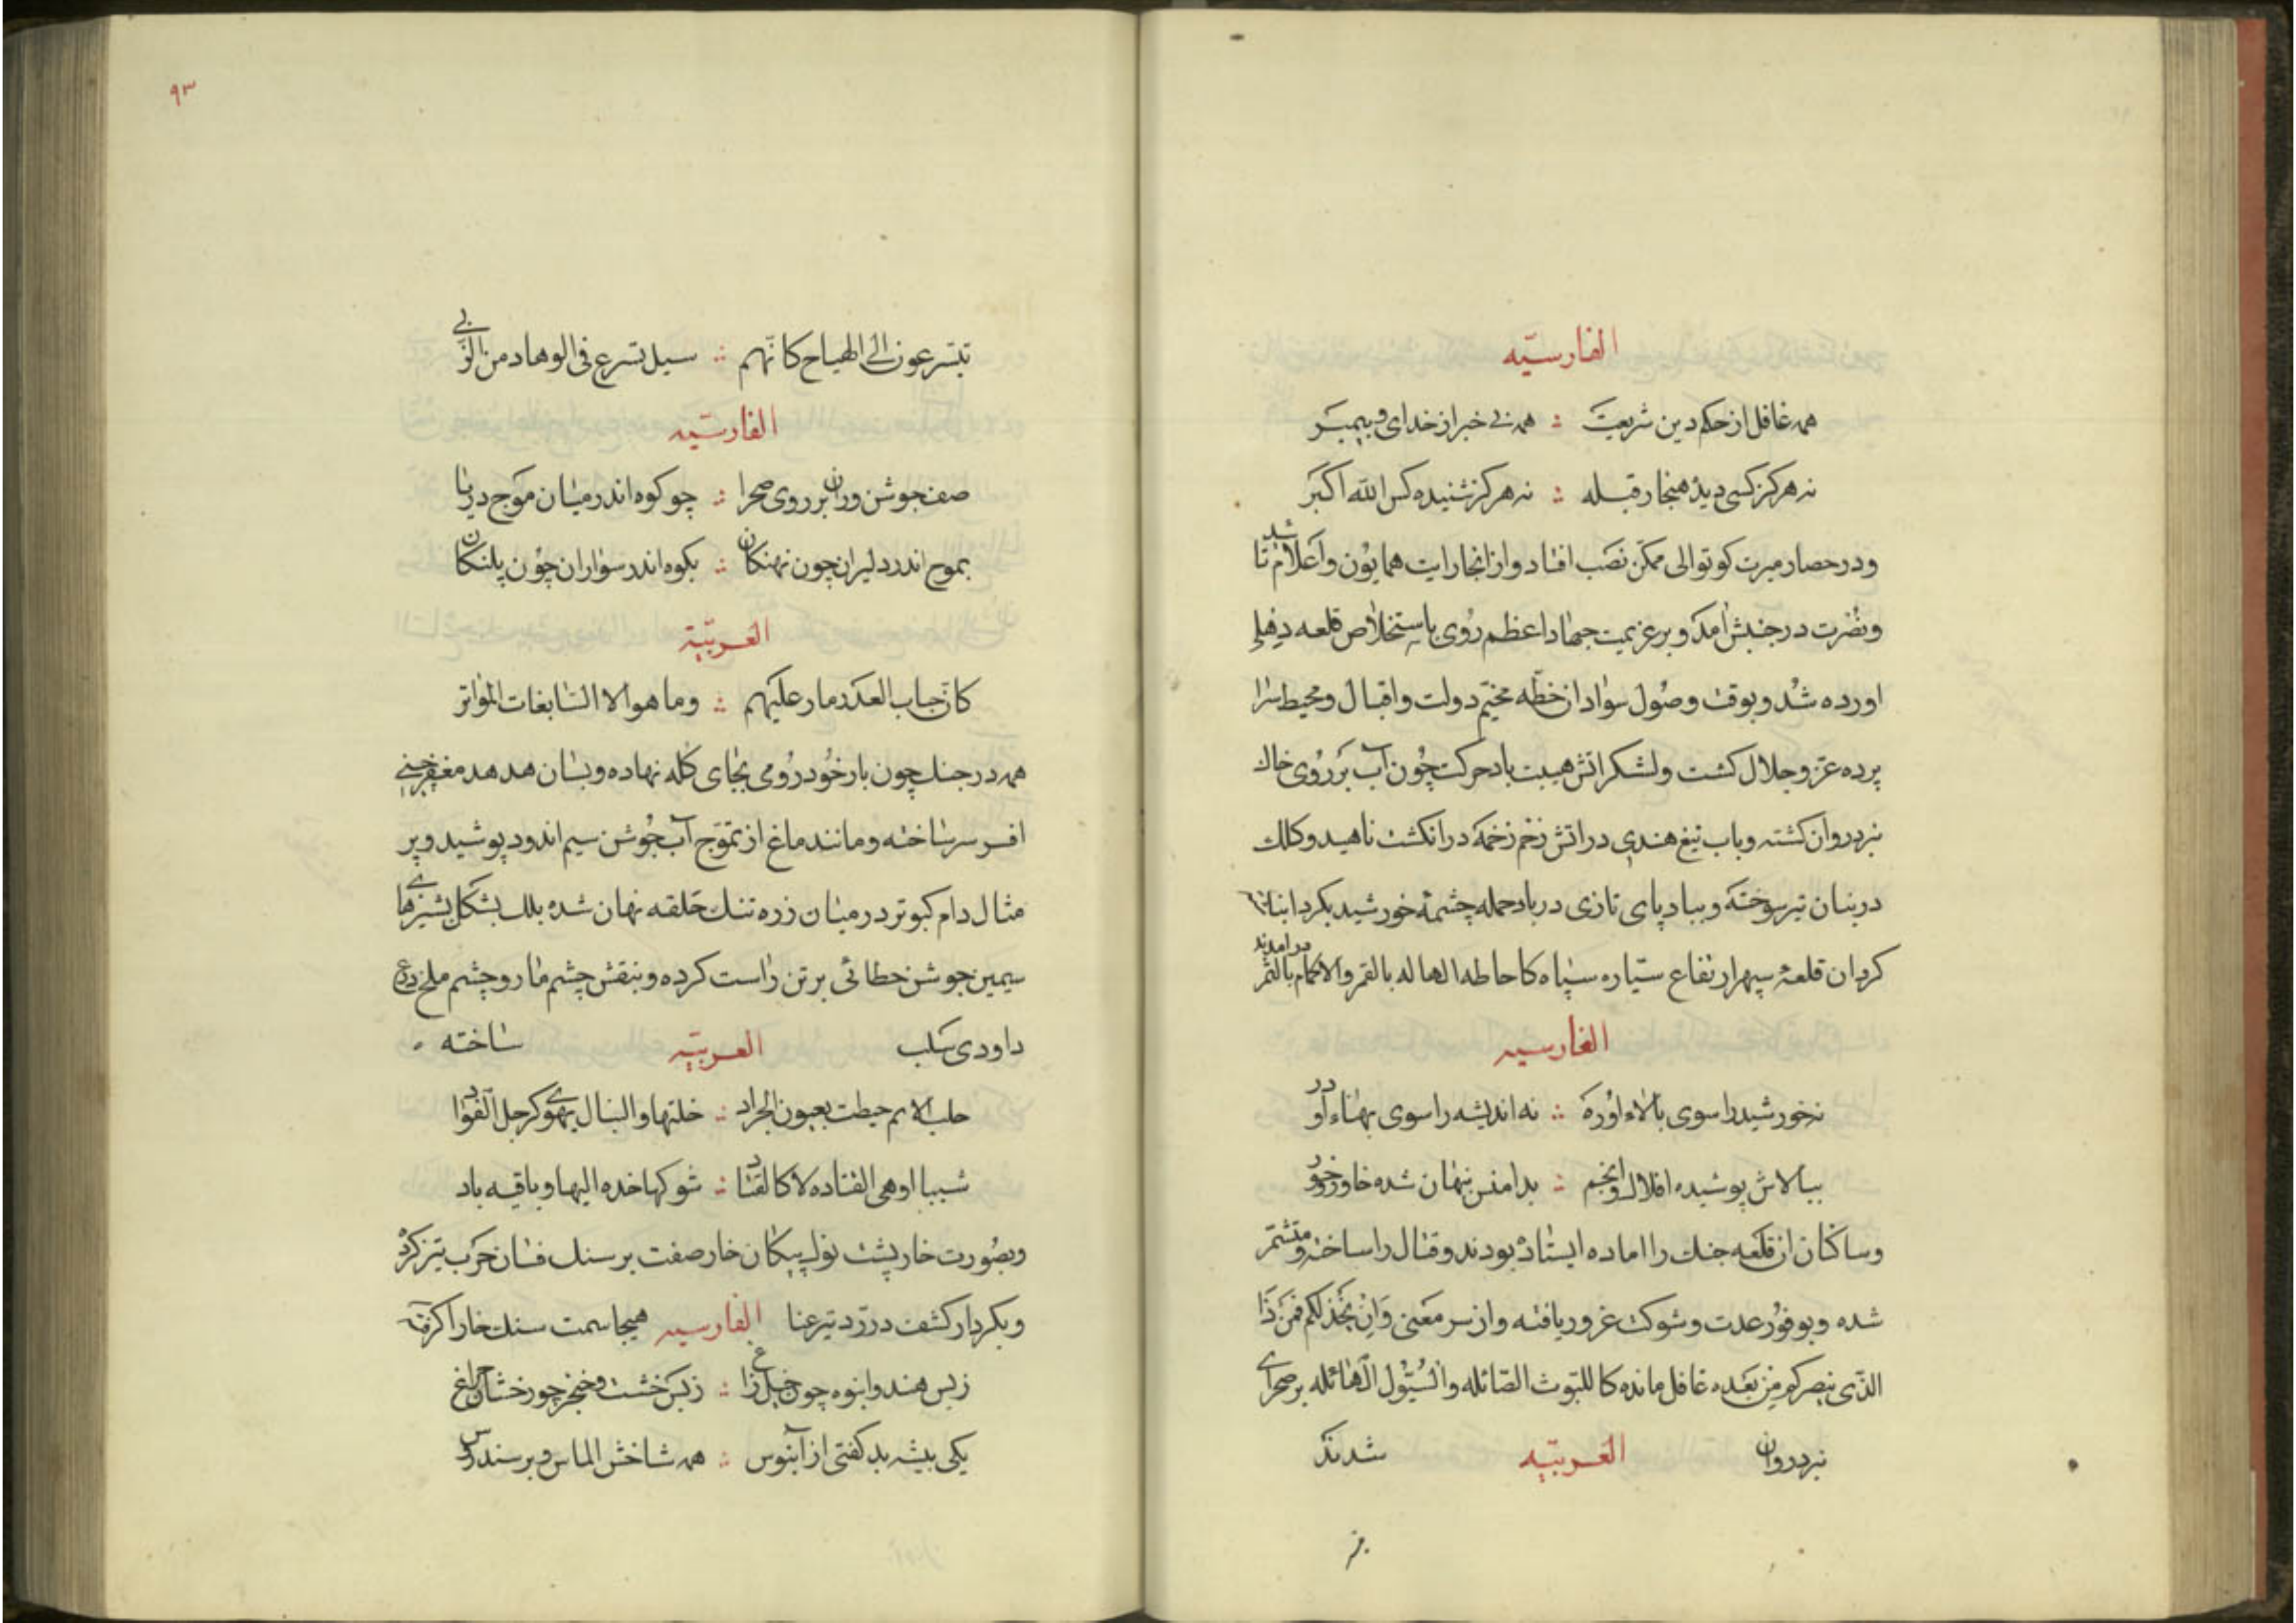 الفارسیّه
همه غافل از حکم دین شریعت ∴ همه بی خبر از خدای و پیمبر
نه هرکز کسی دیده هنجار قبله ∴ نه هرکز شنیده کس الله اکبر
ودر حصار میرت کوتوالی ممکن نصب افتاد و از انجا رایت همایون و اعلام تا شد
ونصرت در جنبش امد و بر عزیمت جهاد اعظم روی باستخلاص قلعه دهلی
اورده شد و بوقت وصول سواد ان خطّه مخیّم دولت و اقبال و محیط سرا
پرده عز و جلال کشت و لشکر اتش هیبت باد حرکت چون آب بر روی خاک
نبرد روان کشته و باب تیغ هندی در اتش زخم زخمه در انکشت ناهید و کلک
در بنان تیر سوخته و بباد پای تازی در باد حمله چشمهٔ خورشید بکرد
کرد ان قلعهٔ سپهر ارتفاع ستاره سپاه کاحاطه الهاله بالقمر والاکمام بالثمر در امدند
الفارسیه
نه خورشید را سوی بالاء او ره ∴ نه اندیشه را سوی پهناء او در
ببالاش پوشیده افلاک و انجم ∴ بدامنش پنهان شده خاور و خور
وساکنان ان قلعه جنک را اماده ایستاده بودند و قتال را ساخته و متشمر
شده و بوفور عدت و شوکت غرور یافته و از سر معنی وَاِنْ یَخْذُلْکُم فَمَن ذَا
الذی ینصرکم من بعده غافل مانده کاللیوث الصائله والسیول الهائله بر صحرای
نبرد روان العربیّه شدند
۹۳
یتسرعون الی الهیاح کانّهم ∴ سیل تسرع فی الوهاد من الرّبی
الفارسیّه
صف جوشن وران بر روی صحرا ∴ چو کوه اندر میان موج دریا
بموج اندر دلیران چون نهنکان ∴ بکوه اندر سواران چون پلنکان
العربیّة
کان حباب العد در مار علیهم ∴ وما هو الا السابغات المواتر
همه در جنک چون باز خود رومی بجای کله نهاده و بسان هدهد مغفر چینی
افسر سر ساخته و مانند ماغ از تموّج آب جوشن سیم اندود پوشید و بر
مثال دام کبوتر در میان زره تنک حلقه نهان شده بلک بشکل پشیزهای
سیمین جوشن خطائی بر تن راست کرده و بنقش چشم مار و چشم ملخ درع
داودی سلب العربیّه ساخته
شبها اوهی القتاده لا کالقتاد ∴ شوکها خده الیها و باقیه باد
وبصورت خار پشت نوک پیکان خار صفت بر سنک فسان حرب تیز کرد
وبکردار کشف در زد تیر عنا الفارسیه هیجا سمت سنک خارا کرفته
زبس هندو انبوه چون خیل زاغ ∴ زبس خشت و خنجر چو رخشان چراغ
یکی بیشه بد کفتی از آبنوس ∴ همه شاخش الماس و بر سندروس